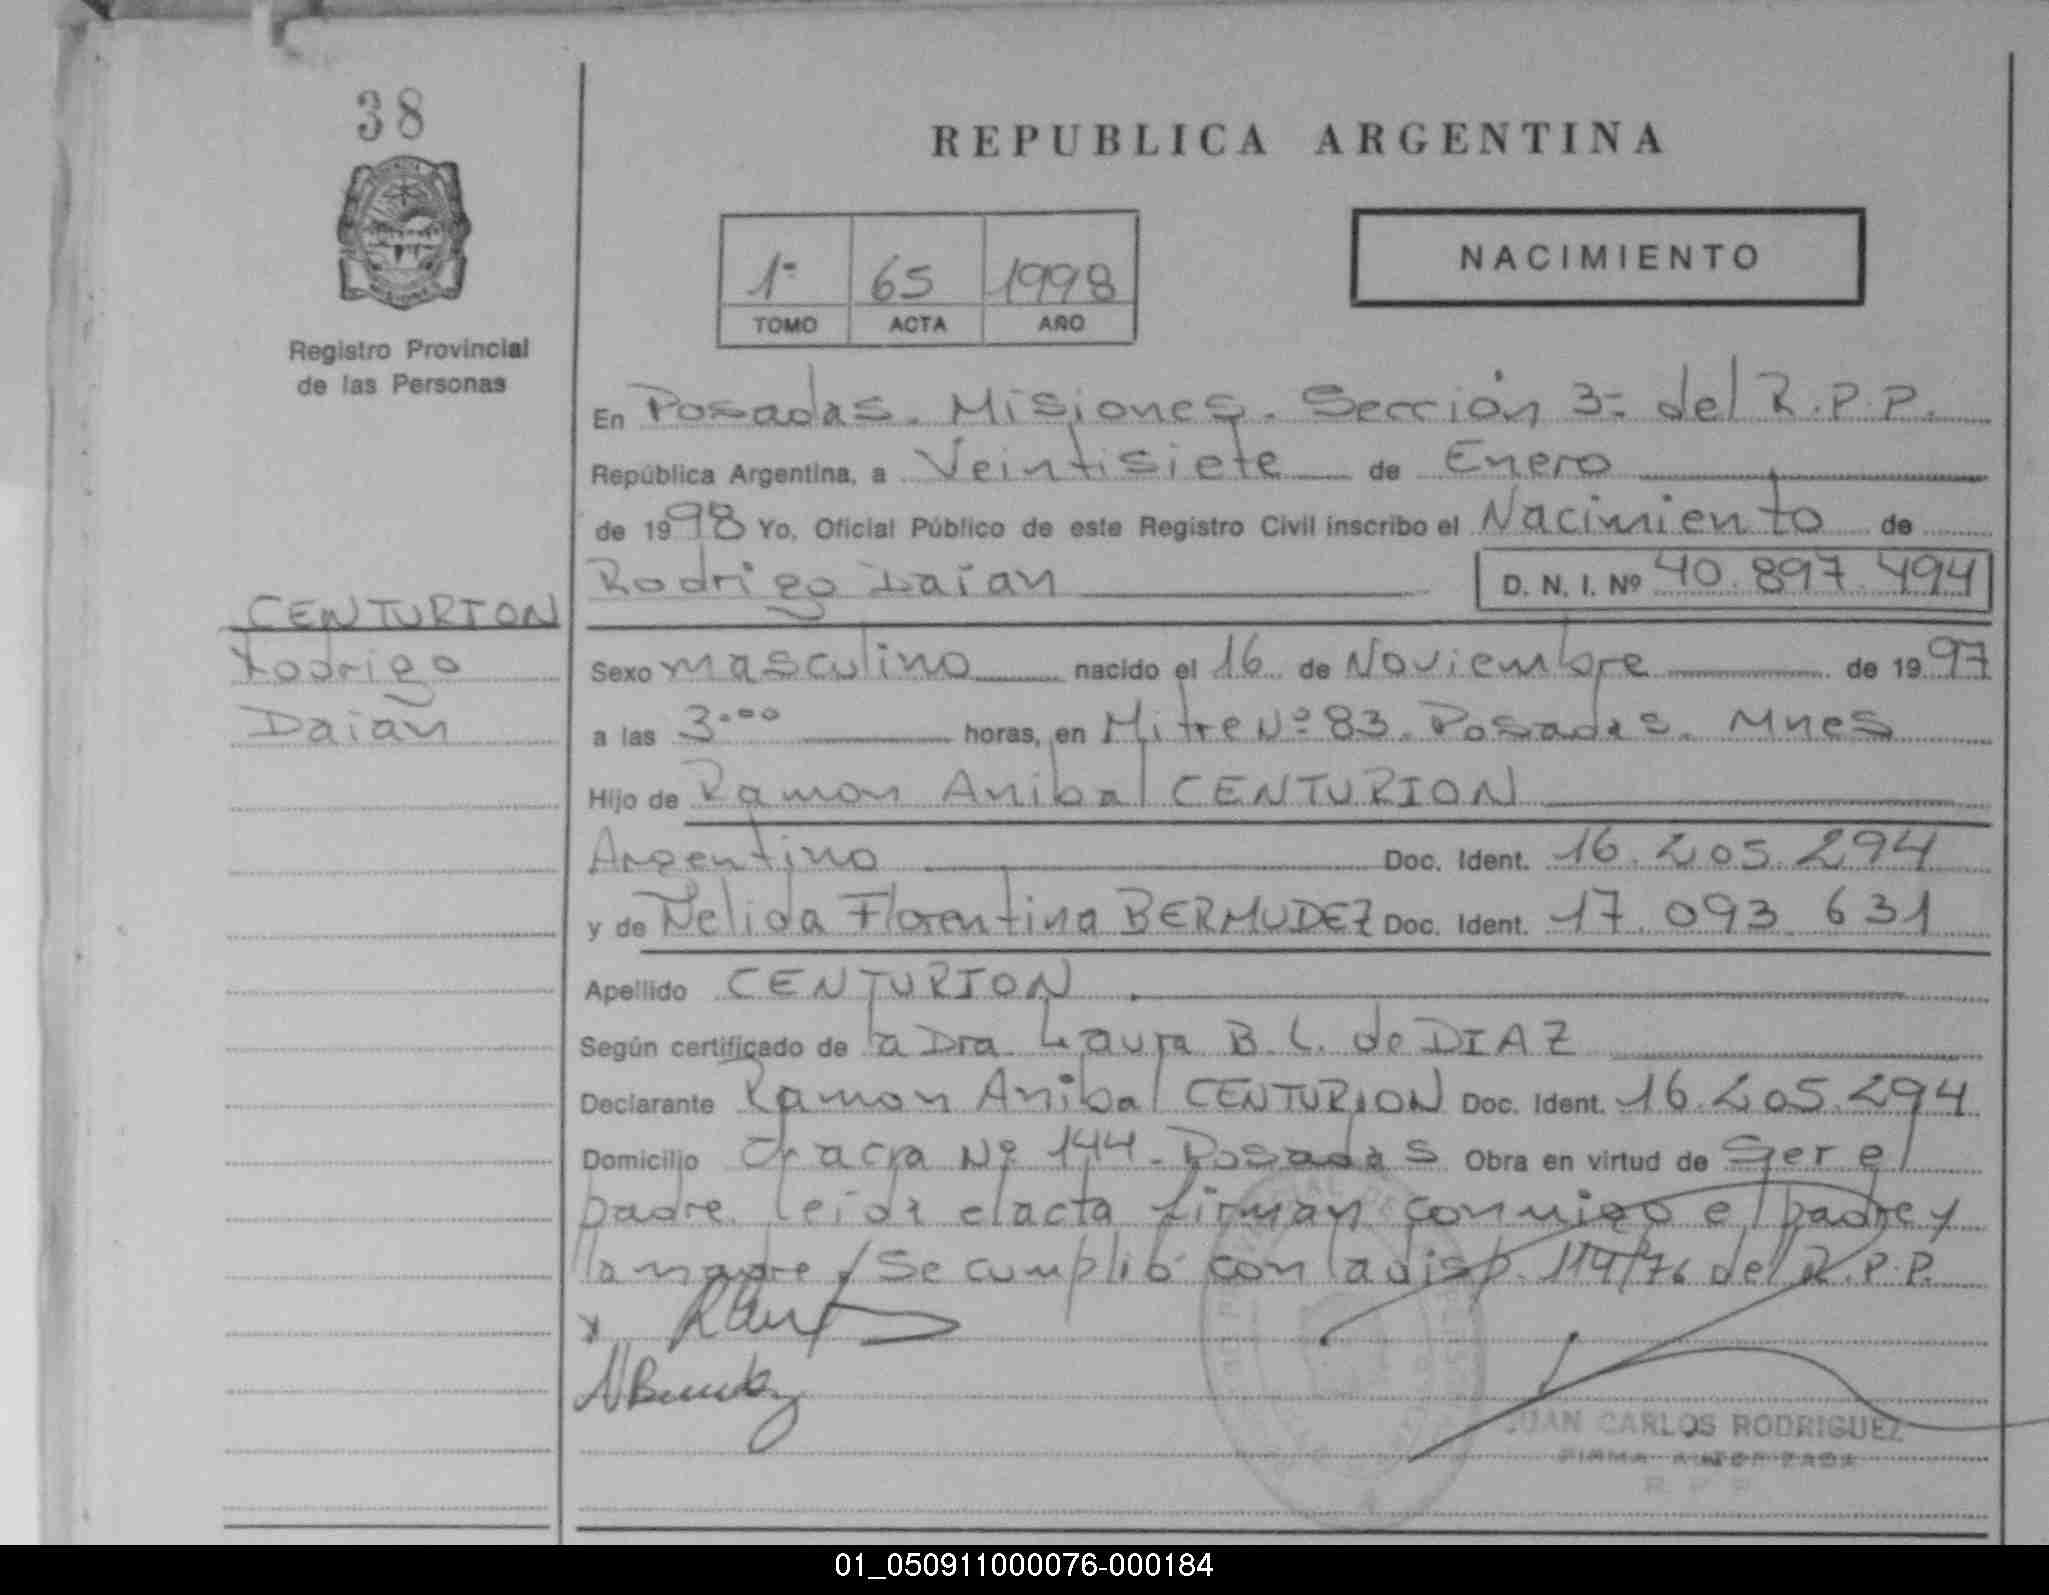 38
REPUBLICA ARGENTINA
NACIMIENTO
1ª 65 1998
TOMO ACTA AÑO
Registro Provincial
de las Personas
En Posadas. Misiones. Sección 3ª del R.P.P.
República Argentina, a Veintisiete de Enero
de 1998 Yo, Oficial Público de este Registro Civil inscribo el Nacimiento de
Rodrigo Daian D. N. I. Nº 40.897.494
CENTURION
Rodrigo
Daian
Sexo masculino nacido el 16 de Noviembre de 1997
a las 3.00 horas, en Mitre Nº 83. Posadas. Mnes
Hijo de Ramon Anibal CENTURION
Argentino Doc. Ident. 16.205.294
y de Nelida Florentina BERMUDEZ Doc. Ident. 17.093.631
Apellido CENTURION
Según certificado de la Dra. Laura B. L. de DIAZ
Declarante Ramon Anibal CENTURION Doc. Ident. 16.205.294
Domicilio Chacra Nº 144. Posadas Obra en virtud de Ser el
padre. leida el acta firman conmigo el padre y
la madre / Se cumplió con la disp. 114/76 del R.P.P.
JUAN CARLOS RODRIGUEZ
FIRMA AUTORIZADA
R P P
01_050911000076-000184